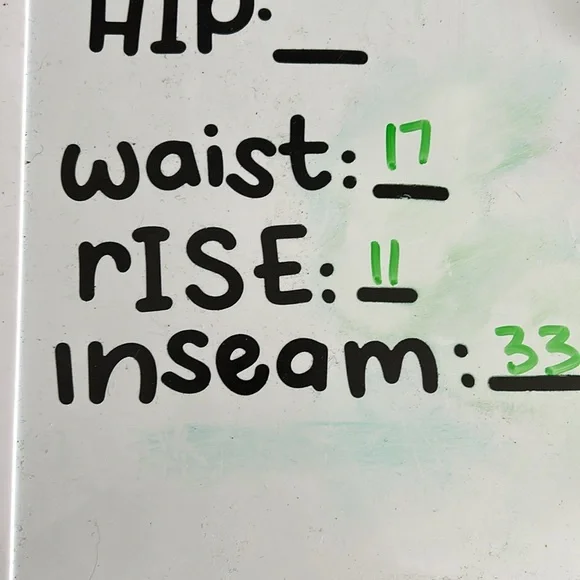 HIP: __
waist: 17
rISE: 11
Inseam: 33